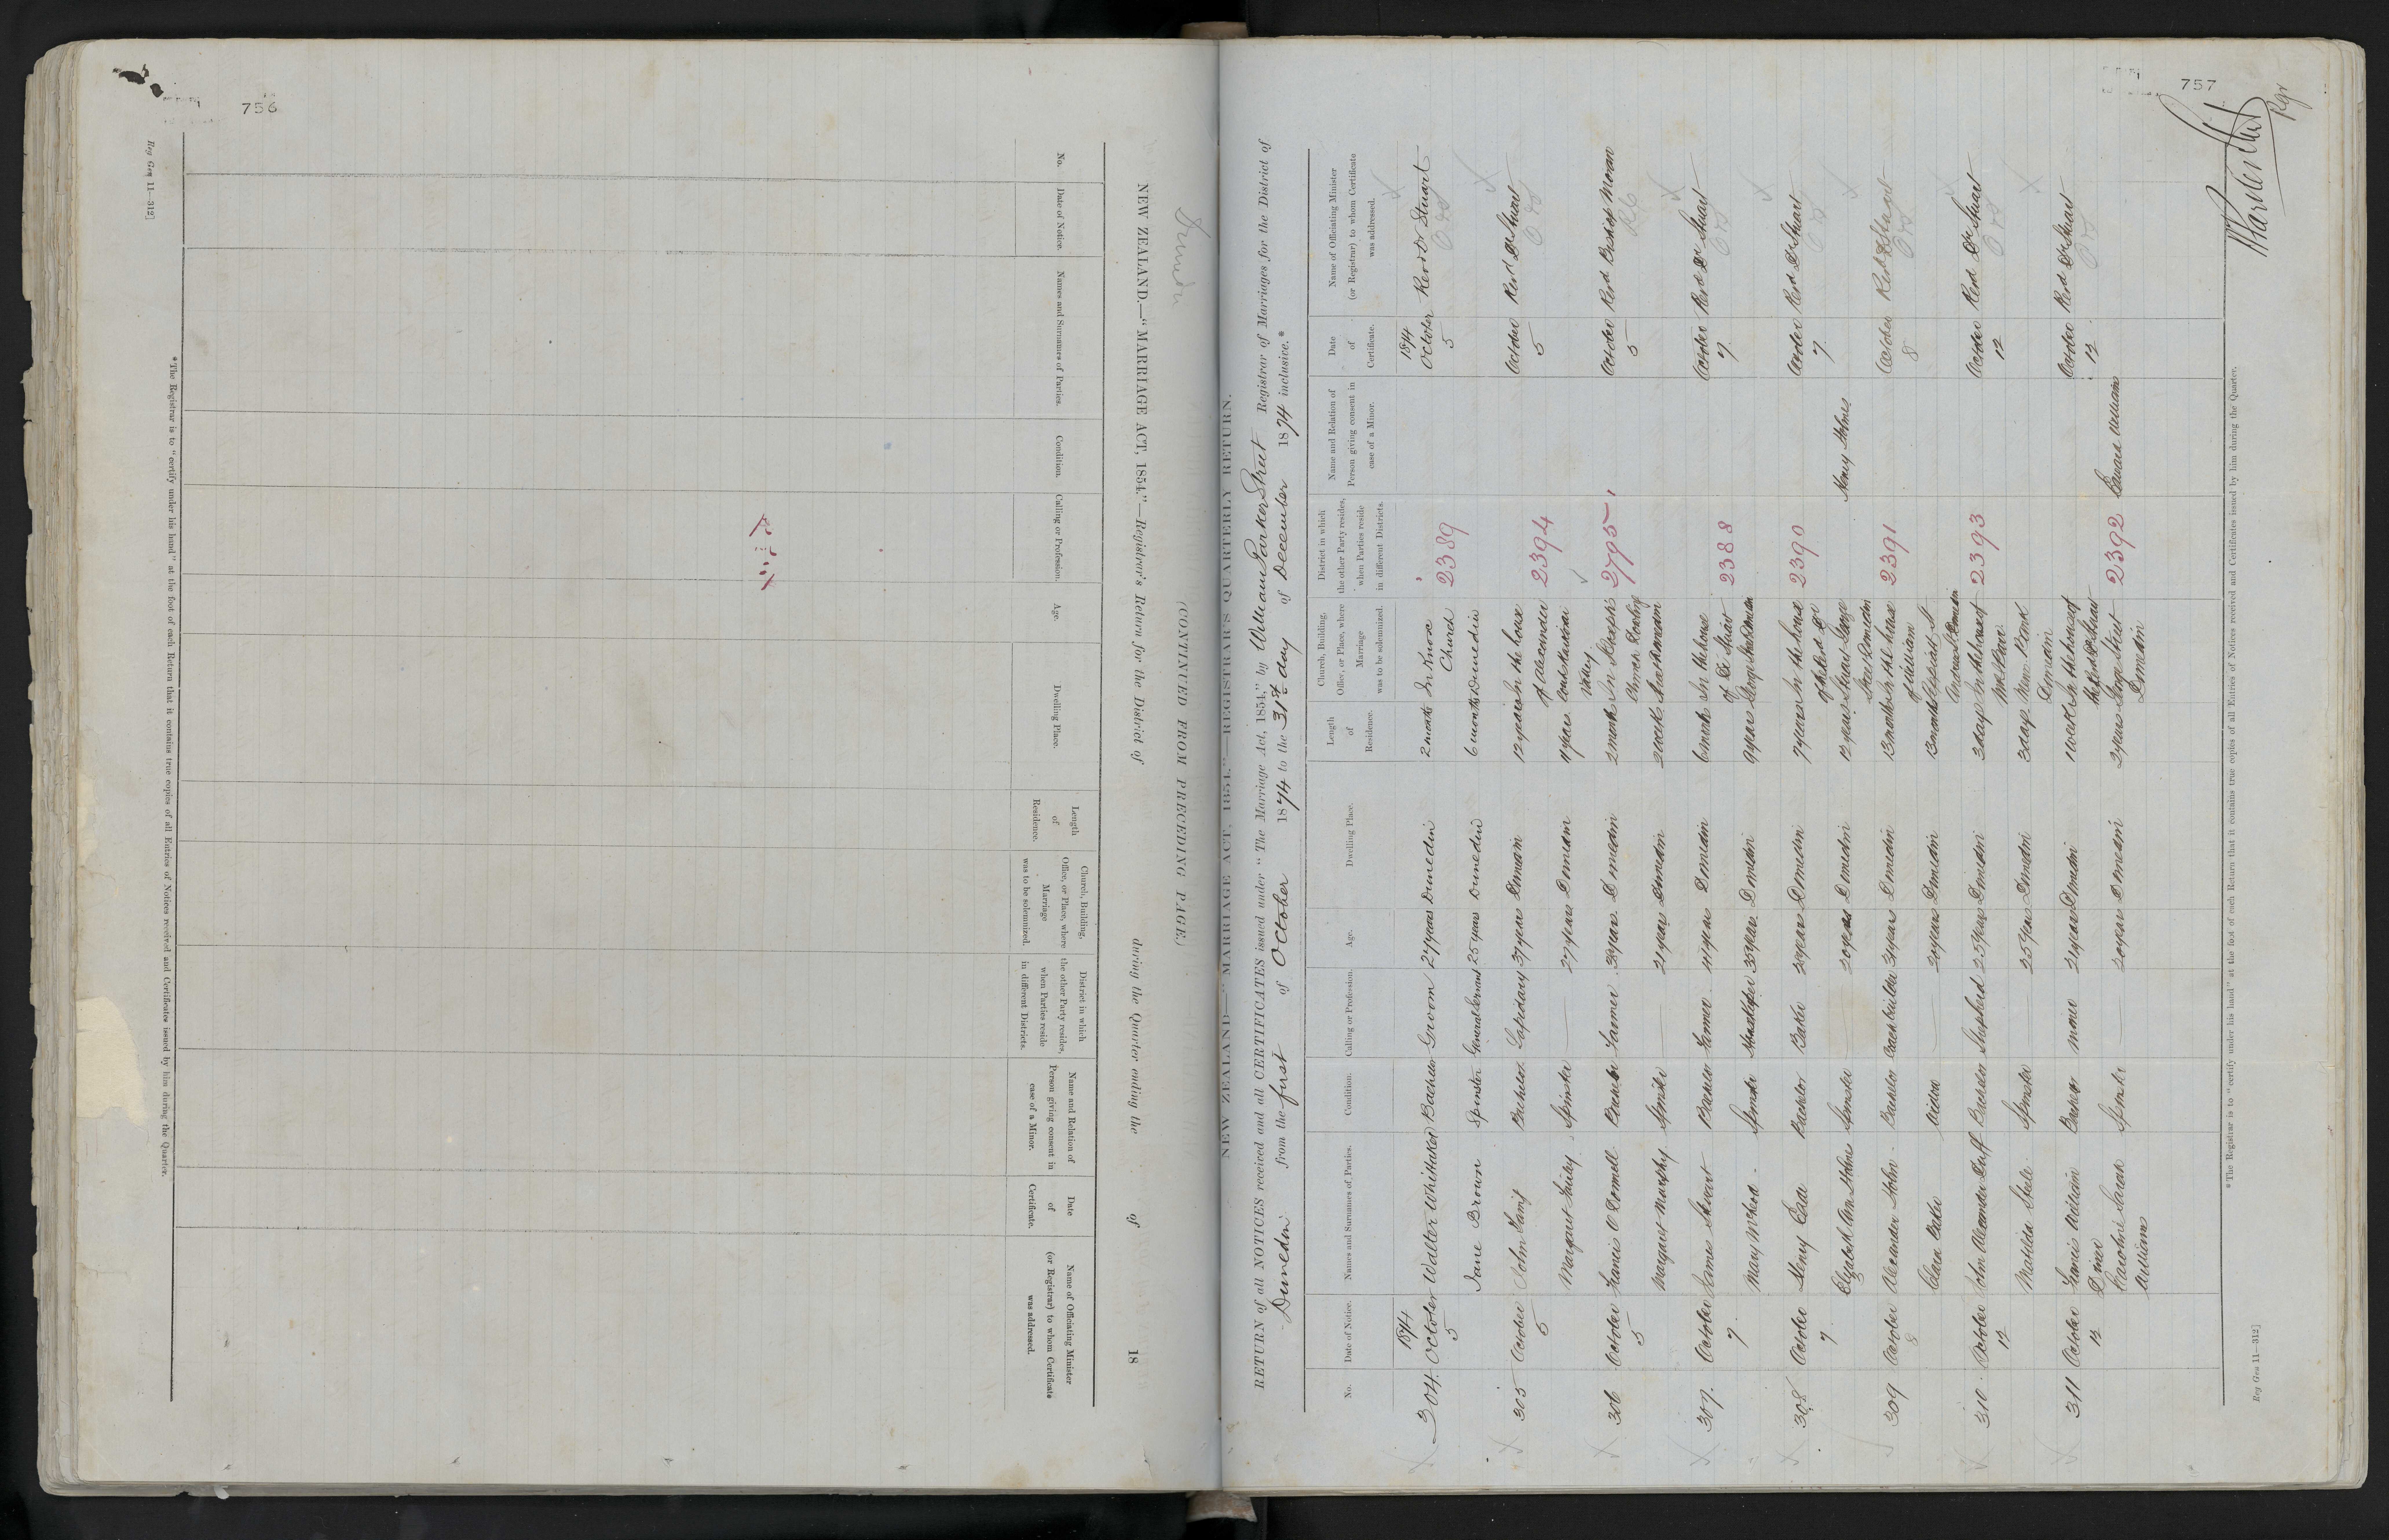 756
Reg Gen 11—312]
NEW ZEALAND.—"MARRIAGE ACT, 1854."—Registrar's Return for the District of during the Quarter ending the of 18
(CONTINUED FROM PRECEDING PAGE.)
No.
Date of Notice.
Names and Surnames of Parties.
Condition.
Calling or Profession.
Age.
Dwelling Place.
Length of Residence.
Church, Building, Office, or Place, where Marriage was to be solemnized.
District in which the other Party resides, when Parties reside in different Districts.
Name and Relation of Person giving consent in case of a Minor.
Date of Certificate.
Name of Officiating Minister (or Registrar) to whom Certificate was addressed.
*The Registrar is to "certify under his hand" at the foot of each Return that it contains true copies of all Entries of Notices received and Certificates issued by him during the Quarter.
757
Dunedin
NEW ZEALAND—"MARRIAGE ACT, 1854."—REGISTRAR'S QUARTERLY RETURN.
RETURN of all NOTICES received and all CERTIFICATES issued under "The Marriage Act, 1854," by William Parker Street Registrar of Marriages for the District of
Dunedin from the first of October 1874 to the 31st day of December 1874 inclusive.*
No.
Date of Notice.
Names and Surnames of Parties.
Condition.
Calling or Profession.
Age.
Dwelling Place.
Length of Residence.
Church, Building, Office, or Place, where Marriage was to be solemnized.
District in which the other Party resides, when Parties reside in different Districts.
Name and Relation of Person giving consent in case of a Minor.
Date of Certificate.
Name of Officiating Minister (or Registrar) to whom Certificate was addressed.
304 1874 October 5 Walter Whittaker Bachelor Groom 27 years Dunedin 2 months In Knox Church 2389 1874 October 5 Revd Dr Stuart
Jane Brown Spinster General Servant 25 years Dunedin 6 months Dunedin
305 October 5 John Bachelor Lapidary 37 years Dunedin 12 years In the house of Alexander 2394 October 5 Revd Dr Stuart
Margaret Spinster — 27 years Dunedin 11 years Valley
306 October 5 Francis O'Donnell Bachelor Farmer Dunedin 2 months In St Joseph's 2795 October 5 Revd Bishop Moran
Margaret Murphy Spinster — 21 years Dunedin 3 weeks
307 October 7 James Stuart Bachelor Farmer 41 years Dunedin 6 months In the house of Dr Stuart 2388 October 7 Revd Dr Stuart
Mary McLeod Spinster Housekeeper Dunedin 9 years George St Dunedin
308 October 7 Henry Bachelor Baker Dunedin 7 years In the house of the Revd Dr Stuart George Street Dunedin 2390 October 7 Revd Dr Stuart
Elizabeth Ann Holmes Spinster — 20 years Dunedin 12 years Henry Holmes
309 October 8 Alexander John Bachelor Coachbuilder Dunedin 13 months In the house of 2391 October 8 Revd Dr Stuart
Clara Baker Widow — Dunedin 13 months
310 October 12 John Alexander Duff Bachelor Shepherd Dunedin 3 days In the house of 2393 October 12 Revd Dr Stuart
Matilda Steele Spinster — 25 years Dunedin 3 days Dunedin
311 October 12 Francis William Bachelor Miner Dunedin 1 week In the house of the Revd Dr Stuart 2392 October 12 Revd Dr Stuart
Caroline Sarah Williams Spinster — 20 years Dunedin 2 years Street Dunedin Edward Williams
*The Registrar is to "certify under his hand" at the foot of each Return that it contains true copies of all Entries of Notices received and Certificates issued by him during the Quarter.
Reg Gen 11—312]
WParker Street
Rgr